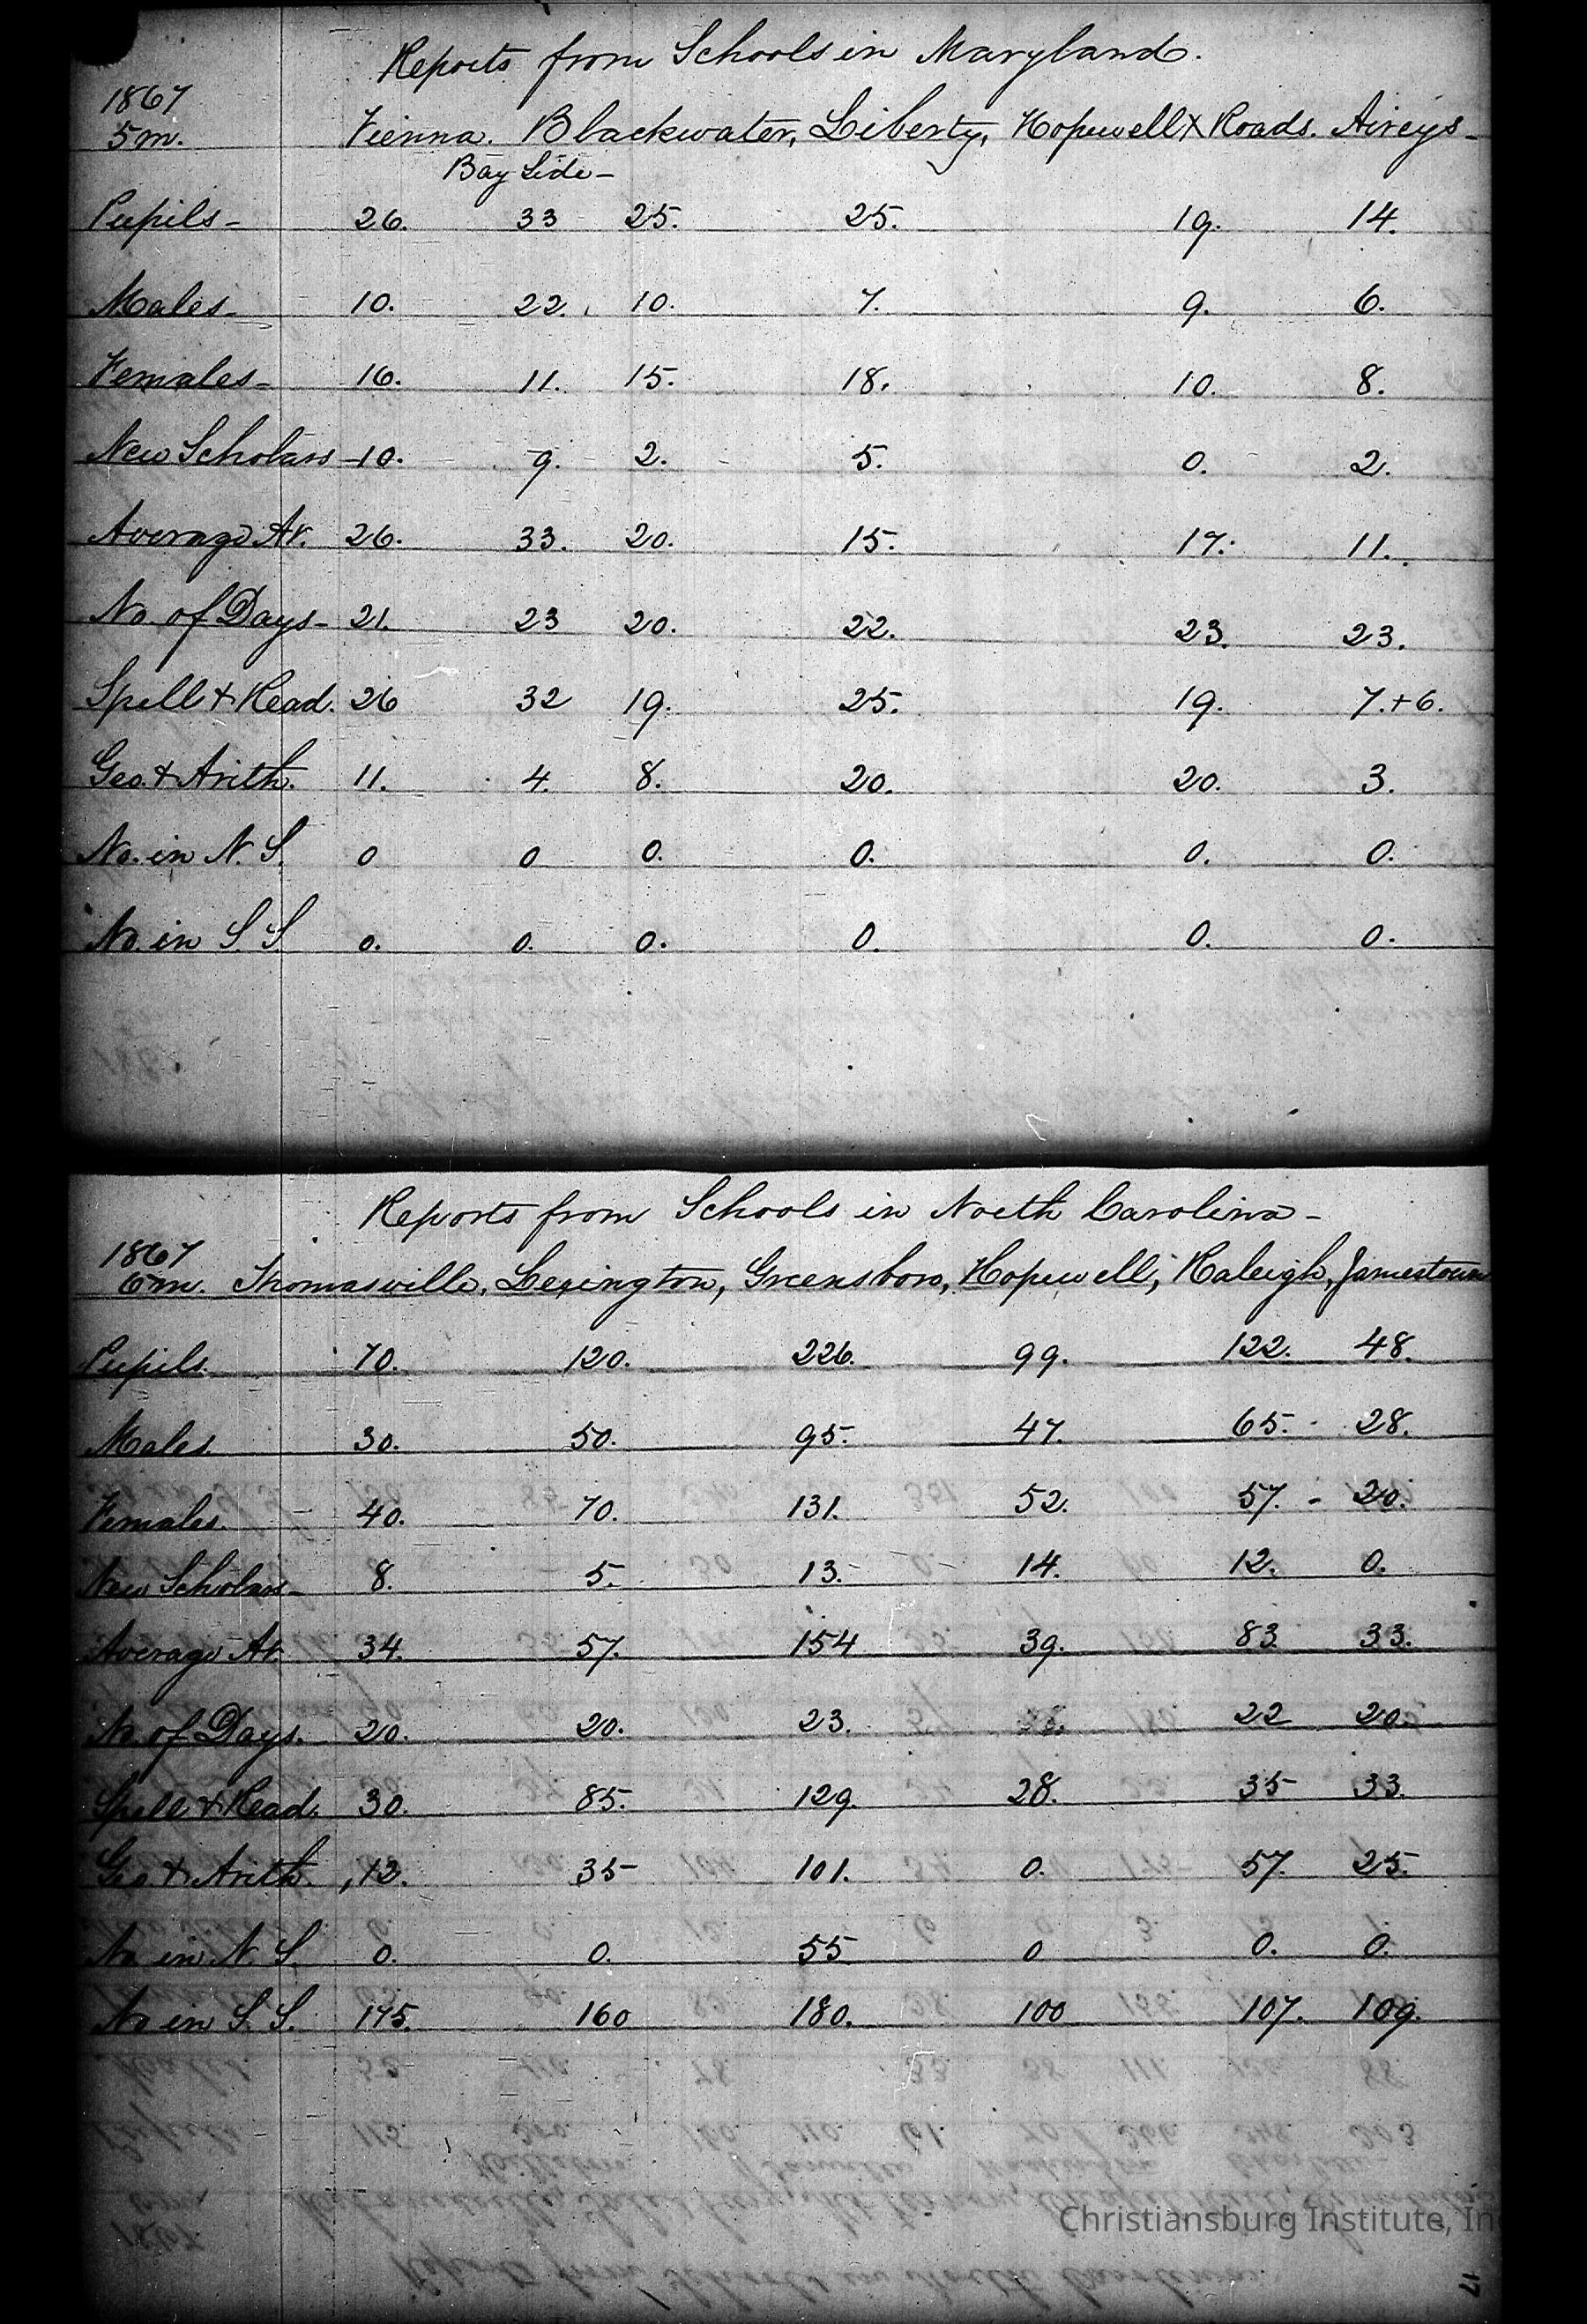 Reports from Schools in Maryland.
1867
5m. Vienna. Blackwater, Liberty, Hopewell X Roads. Aireys-
Bay Side-
Pupils- 26. 33 25. 25. 19. 14.
Males- 10. 22. 10. 7. 9. 6.
Females- 16. 11. 15. 18. 10. 8.
New Scholars- 10. 9. 2. 5. 0. 2.
Average At. 26. 33. 20. 15. 17. 11.
No. of Days- 21. 23 20. 22. 23. 23.
Spell + Read. 26 32 19. 25. 19. 7.+6.
Geo. + Arith. 11. 4. 8. 20. 20. 3.
No. in N. S. 0 0 0. 0. 0. 0.
No. in S. S. 0. 0. 0. 0. 0. 0.
Reports from Schools in North Carolina-
1867
6m. Thomasville, Lexington, Greensboro, Hopewell, Raleigh, Jamestown
Pupils. 70. 120. 226. 99. 122. 48.
Males. 30. 50. 95. 47. 65. 28.
Females. 40. 70. 131. 52. 57. 20.
New Scholars- 8. 5. 13. 14. 12. 0.
Average At. 34. 57. 154 39. 83 33.
No of Days. 20. 20. 23. 22 20.
Spell + Read. 30. 85. 129. 28. 35 33.
Geo + Arith. 12. 35 101. 0. 57. 25.
No in N. S. 0. 0. 55 0 0. 0.
No in S. S. 175. 160 180. 100 107. 109.
Christiansburg Institute, In
17